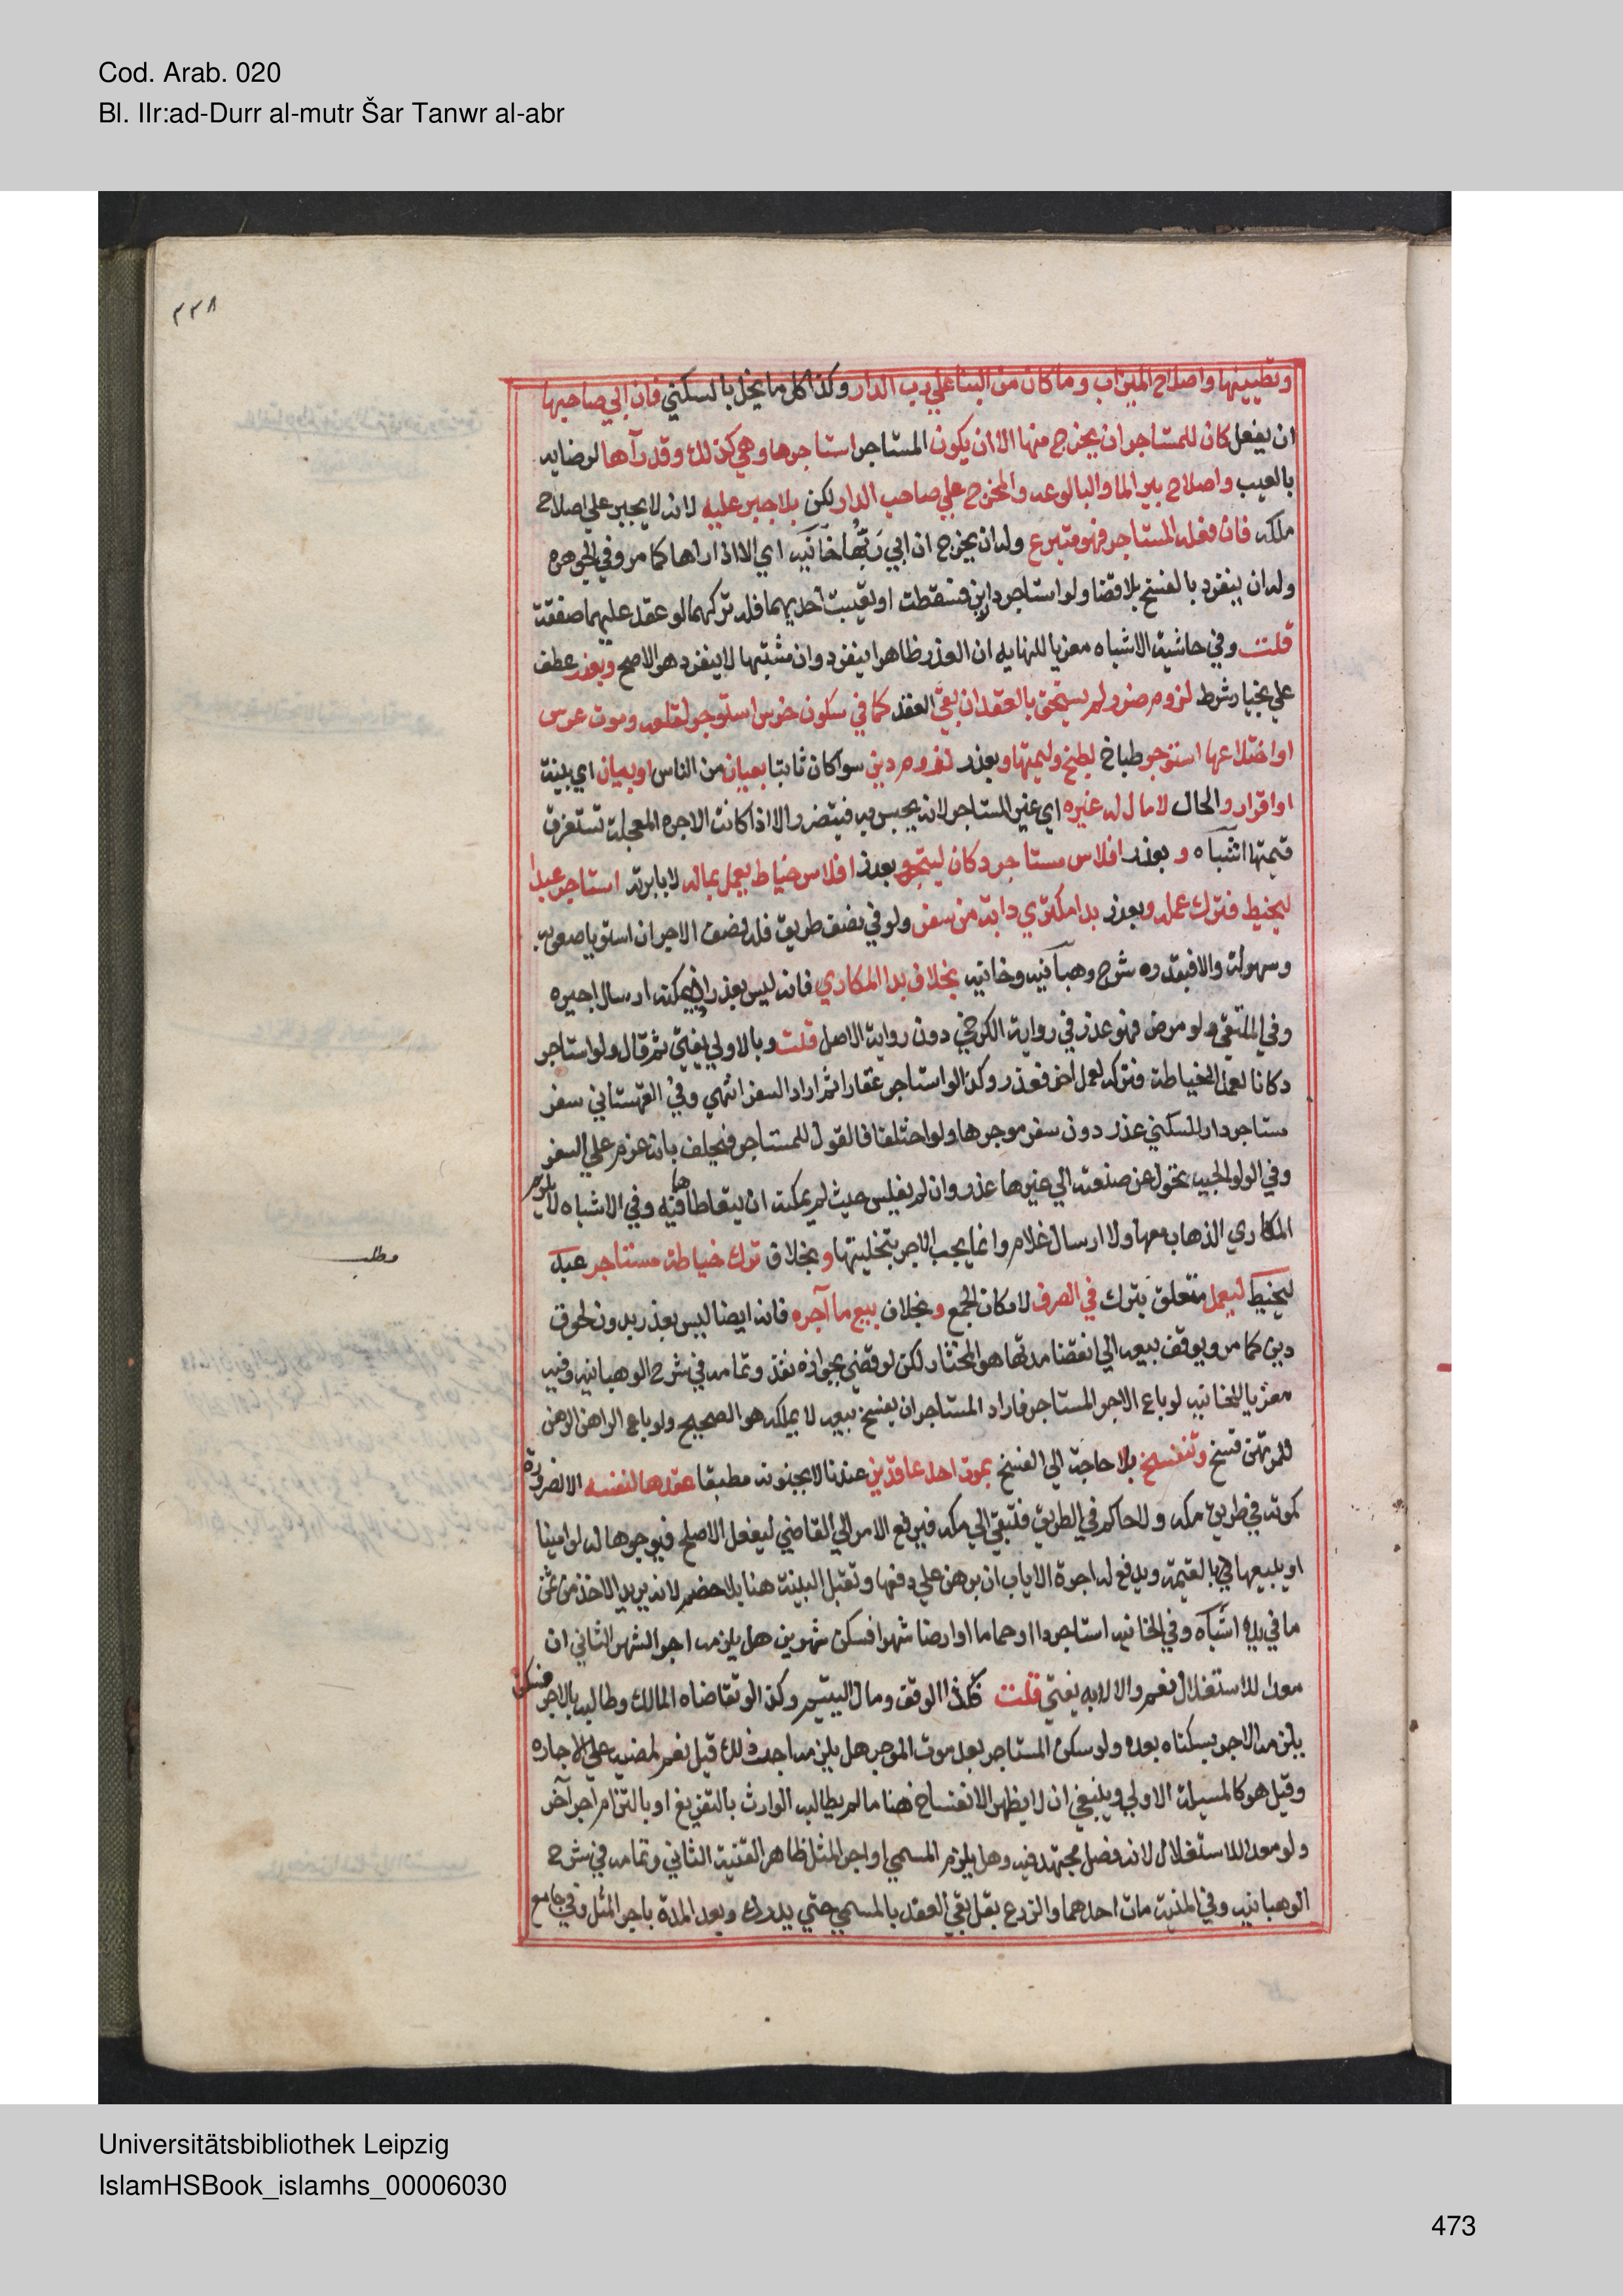 Cod. Arab. 020
Bl. IIr:ad-Durr al-mutr Šar Tanwr al-abr
٢٣٨
وتطيينها واصلاح الميزاب وما كان من البنا علي رب الدار وكذا كل ما يخل بالسكني فان ابي صاحبها
ان يفعل كان للمستاجر ان يخرج منها الا ان يكون المستاجر استاجرها وهي كذلك وقد رآها لرضايه
بالعيب واصلاح بير الما والبالوعه والمخرج علي صاحب الدار لكن بلا جبر عليه لانه لا يجبر علي اصلاح
ملكه فان فعله المستاجر فهو متبرع وله ان يخرج ان ابي ربها خانيه اي الا اذا راها كما مر وفي الجوهره
وله ان ينفرد بالفسخ بلا قضا ولو استاجر دارين فسقطت او تعيبت احديهما فله تركهما لو عقد عليهما صفقة
قلت وفي حاشية الاشباه معزيا للنهايه ان العذر ظاهرا ينفرد وان مشتبها لا ينفرد هو الاصح وبعذر عطف
علي بخيار شرط لزوم ضرر لم يستحق بالعقد ان بقي العقد كما في سكون ضرس استوجر لقلعه وموت عرس
او اختلاعها استوجر طباخ لطبخ وليمتها وبعذر لزوم دين سوا كان ثابتا بعيان من الناس او بيان اي بينة
او اقرار والحال لا مال له غيره اي غير المستاجر لانه يحبس به فيتضرر الا اذا كانت الاجره المعجلة تستغرق
قيمتها اشباه و بعذر افلاس مستاجر دكان ليتجر وبعذر افلاس خياط يعمل بماله لا بابرته استاجر عبدا
ليخيط فترك عمله وبعذر بدا مكتري دابة من سفر ولو في نصف طريق فله نصف الاجر ان استويا صعوبه
وسهولة والا فبقدره شرح وهبانيه وخانيه بخلاف بدا المكاري فانه ليس بعذر اذ يمكنه ارسال اجيره
وفي الملتقي ولو مرض فهو عذر في رواية الكرخي دون رواية الاصل قلت وبالاولي يفتي ثم قال ولو استاجر
دكانا لعمل الخياطة فتركه لعمل اخر فعذر وكذا لو استاجر عقارا ثم اراد السفر انتهي وفي القهستاني سفر
مستاجر دار للسكني عذر دون سفر موجرها ولو اختلفا فالقول للمستاجر فيحلف بانه عزم علي السفر
وفي الولوالجيه تحول عن صنعته الي غيرها عذر وان لم يفلس حيث لم يمكنه ان يتعاطاها فيه وفي الاشباه لا يلزم
المكاري الذهاب معها ولا ارسال غلام وانما يجب الاجر بتخليتها وبخلاف ترك خياطة مستاجر عبد
مطلب
ليخيط ليعمل متعلق بترك في الصرف لامكان الجمع وبخلاف بيع ما آجره فانه ايضا ليس بعذر بدون لحوق
دين كما مر ويوقف بيعه الي انقضا مدتها هو المختار لكن لو قضي بجوازه نفذ وتمامه في شرح الوهبانيه وفيه
معزيا للخانيه لو باع الاجر المستاجر فاراد المستاجر ان يفسخ بيعه لا يملكه هو الصحيح ولو باع الراهن الرهن
للمرتهن فسخ وتنفسخ بلا حاجة الي الفسخ بموت احد عاقدين عندنا لا بجنونه مطبقا عقدها لنفسه الا لضرورة
كموته في طريق مكه ولا حاكم في الطريق فتبقي الي مكه فيرفع الامر الي القاضي ليفعل الاصلح فيوجرها له لو امينا
او يبيعها بالقيمة ويدفع له اجرة الاياب ان برهن علي دفعها وتقبل البينة هنا بلا خصم لانه يريد الاخذ من ثمن
ما في يده اشباه وفي الخانيه استاجر دارا او حماما او ارضا شهرا فسكن شهرين هل يلزمه اجر الشهر الثاني ان
معدا للاستغلال نعم والا لا به يفتي قلت فكذا الوقف ومال اليتيم وكذا لو تقاضاه المالك وطالبه بالاجر فسكن
يلزمه الاجر بسكناه بعده ولو سكن المستاجر بعد موت الموجر هل يلزمه اجر ذلك قيل نعم لمضيه علي الاجاره
وقيل هو كالمسيلة الاولي وينبغي ان لا يظهر الانفساخ هنا ما لم يطالبه الوارث بالتفريغ او بالتزام اجر آخر
ولو معدا للاستغلال لانه فصل مجتهد فيه وهل يلزم المسمي او اجر المثل ظاهر القنية الثاني وتمامه في شرح
الوهبانيه وفي المنية مات احدهما والزرع بقل بقي العقد بالمسمي حتي يدرك وبعد المدة باجر المثل وفي جامع
Universitätsbibliothek Leipzig
IslamHSBook_islamhs_00006030
473